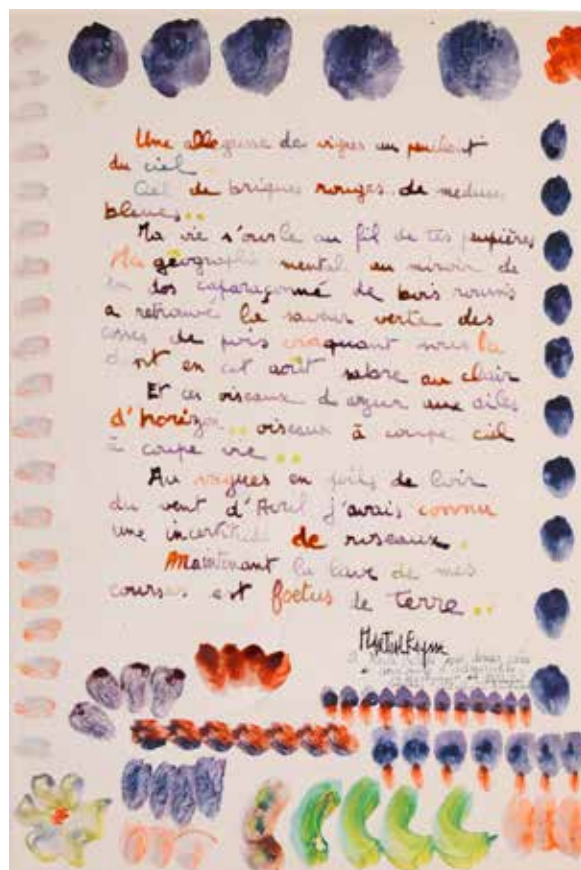 Une allégresse de vignes au penchant
du ciel
Ciel de briques rouges de meduses
bleues..
Ma vie s'ourle au fil de tes paupières
Ma géographie mental au miroir de
ton dos caparaçonné de bois roussis
a retrouvé la saveur verte des
cosses de pois craquant sous la
dent en cet août sabre au clair
Et ces oiseaux d'azur aux ailes
d'horizon.. oiseaux à coupe ciel
à coupe vie..
Au vagues en poils de loir
du vent d'Avril j'avais connu
une incertitude de ruisseaux.
Maintenant la lave de mes
courses est foetus de terre..